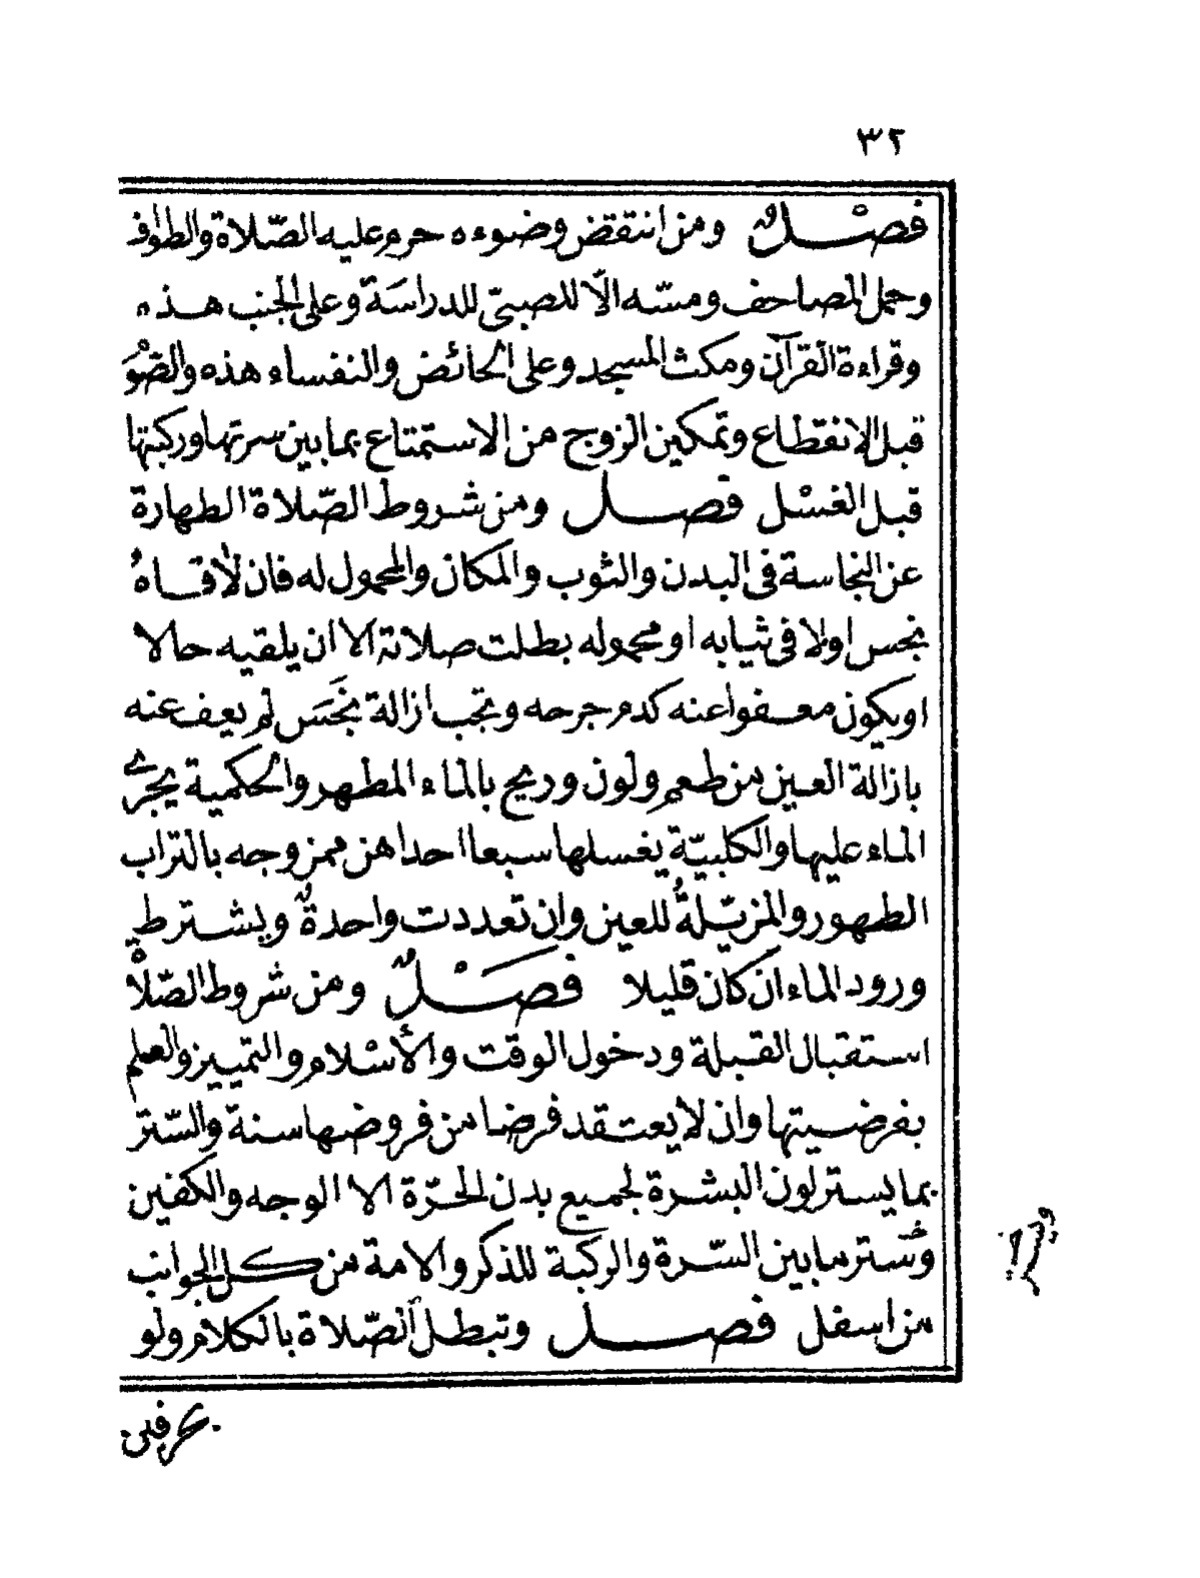 ٣٢
فصْلٌ ومن انتقض وضوءه حرم عليه الصّلاة والطواف
وحمل المصاحف ومسّه الّا للصبيّ للدراسَة وعلى الجنب هذه
وقراءة القرآن ومكث المسجد وعلى الحائض والنفساء هذه والصَّوْ
قبل الانقطاع وتمكين الزوج من الاستمتاع بما بين سرتها وركبتها
قبل الغسْل فصل ومن شروط الصّلاة الطهارة
عن النجاسة فى البدن والثوب والمكان والمحمول له فان لاقاهُ
نجس اولا فى ثيابه او محموله بطلت صلاته الا ان يلقيه حالا
او يكون معفوا عنه كدم جرحه وتجب ازالة نجَس لم يعف عنه
بازالة العين من طعم ولون وريح بالماء المطهر والحكمية بجرى
الماء عليها والكلبيّة بغسلها سبعا احداهن ممزوجه بالتراب
الطهور والمزيلةُ للعين وان تعددت واحدةٌ ويشترط
ورود الماء ان كان قليلا فصَلٌ ومن شروط الصّلاْ
استقبال القبلة ودخول الوقت والأسْلام والتمييز والعلم
بفرضيتها وان لا يعتقد فرضا من فروضها سنة والسّتر
بما يستر لون البشرة لجميع بدن الحرّة الا الوجه والكفين
وسُتر ما بين السّرة والركبة للذكر والامة من كل الجوانب
من اسفل فصل وتبطل الصّلاة بالكلام ولو
بحرفين